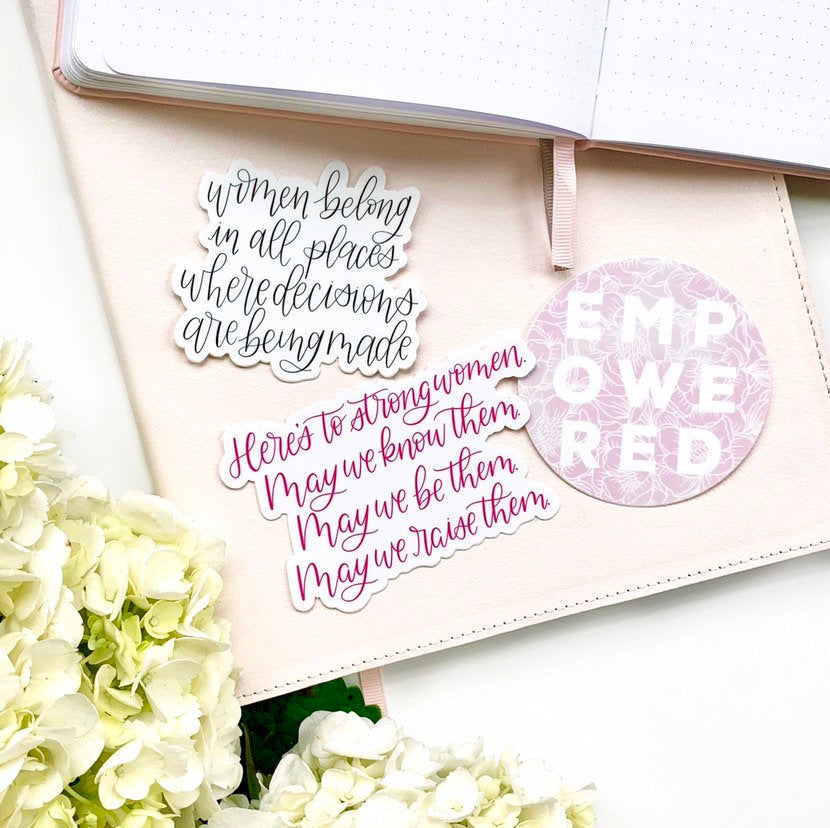 women belong
in all places
where decisions
are being made
Here's to strong women.
May we know them.
May we be them.
May we raise them.
EMP
OWE
RED